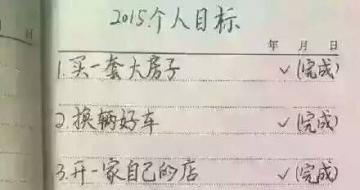 2015个人目标
年 月 日
1.买一套大房子 ✓(完成)
2.换辆好车 ✓(完成)
3.开一家自己的店 ✓(完成)